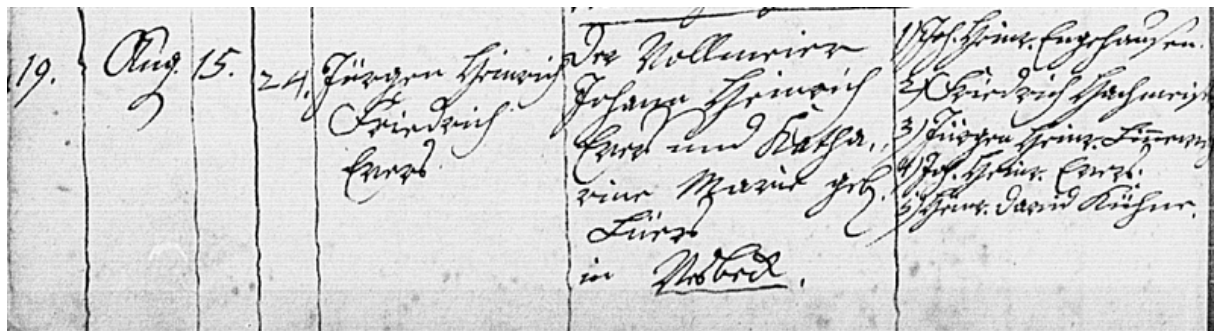 19. Aug. 15. 24. Jürgen Heinrich
Friedrich
Evers.
Der Vollmeier
Johann Heinrich
Evers und Katha,,
rine Marie geb.
Lüers
in Vesbeck.
1) Joh. Heinr. Engehausen.
2) Friedrich Hachmeist
3) Jürgen Heinr.
4) Joh. Heinr. Evers.
5) Heinr. David Kühne.